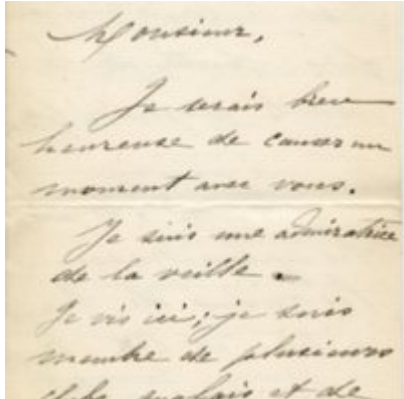 Monsieur,
Je serais bien
heureuse de causer un
moment avec vous.
Je suis une admiratrice
de la veille.
Je vis ici; je suis
membre de plusieurs
clubs anglais et de